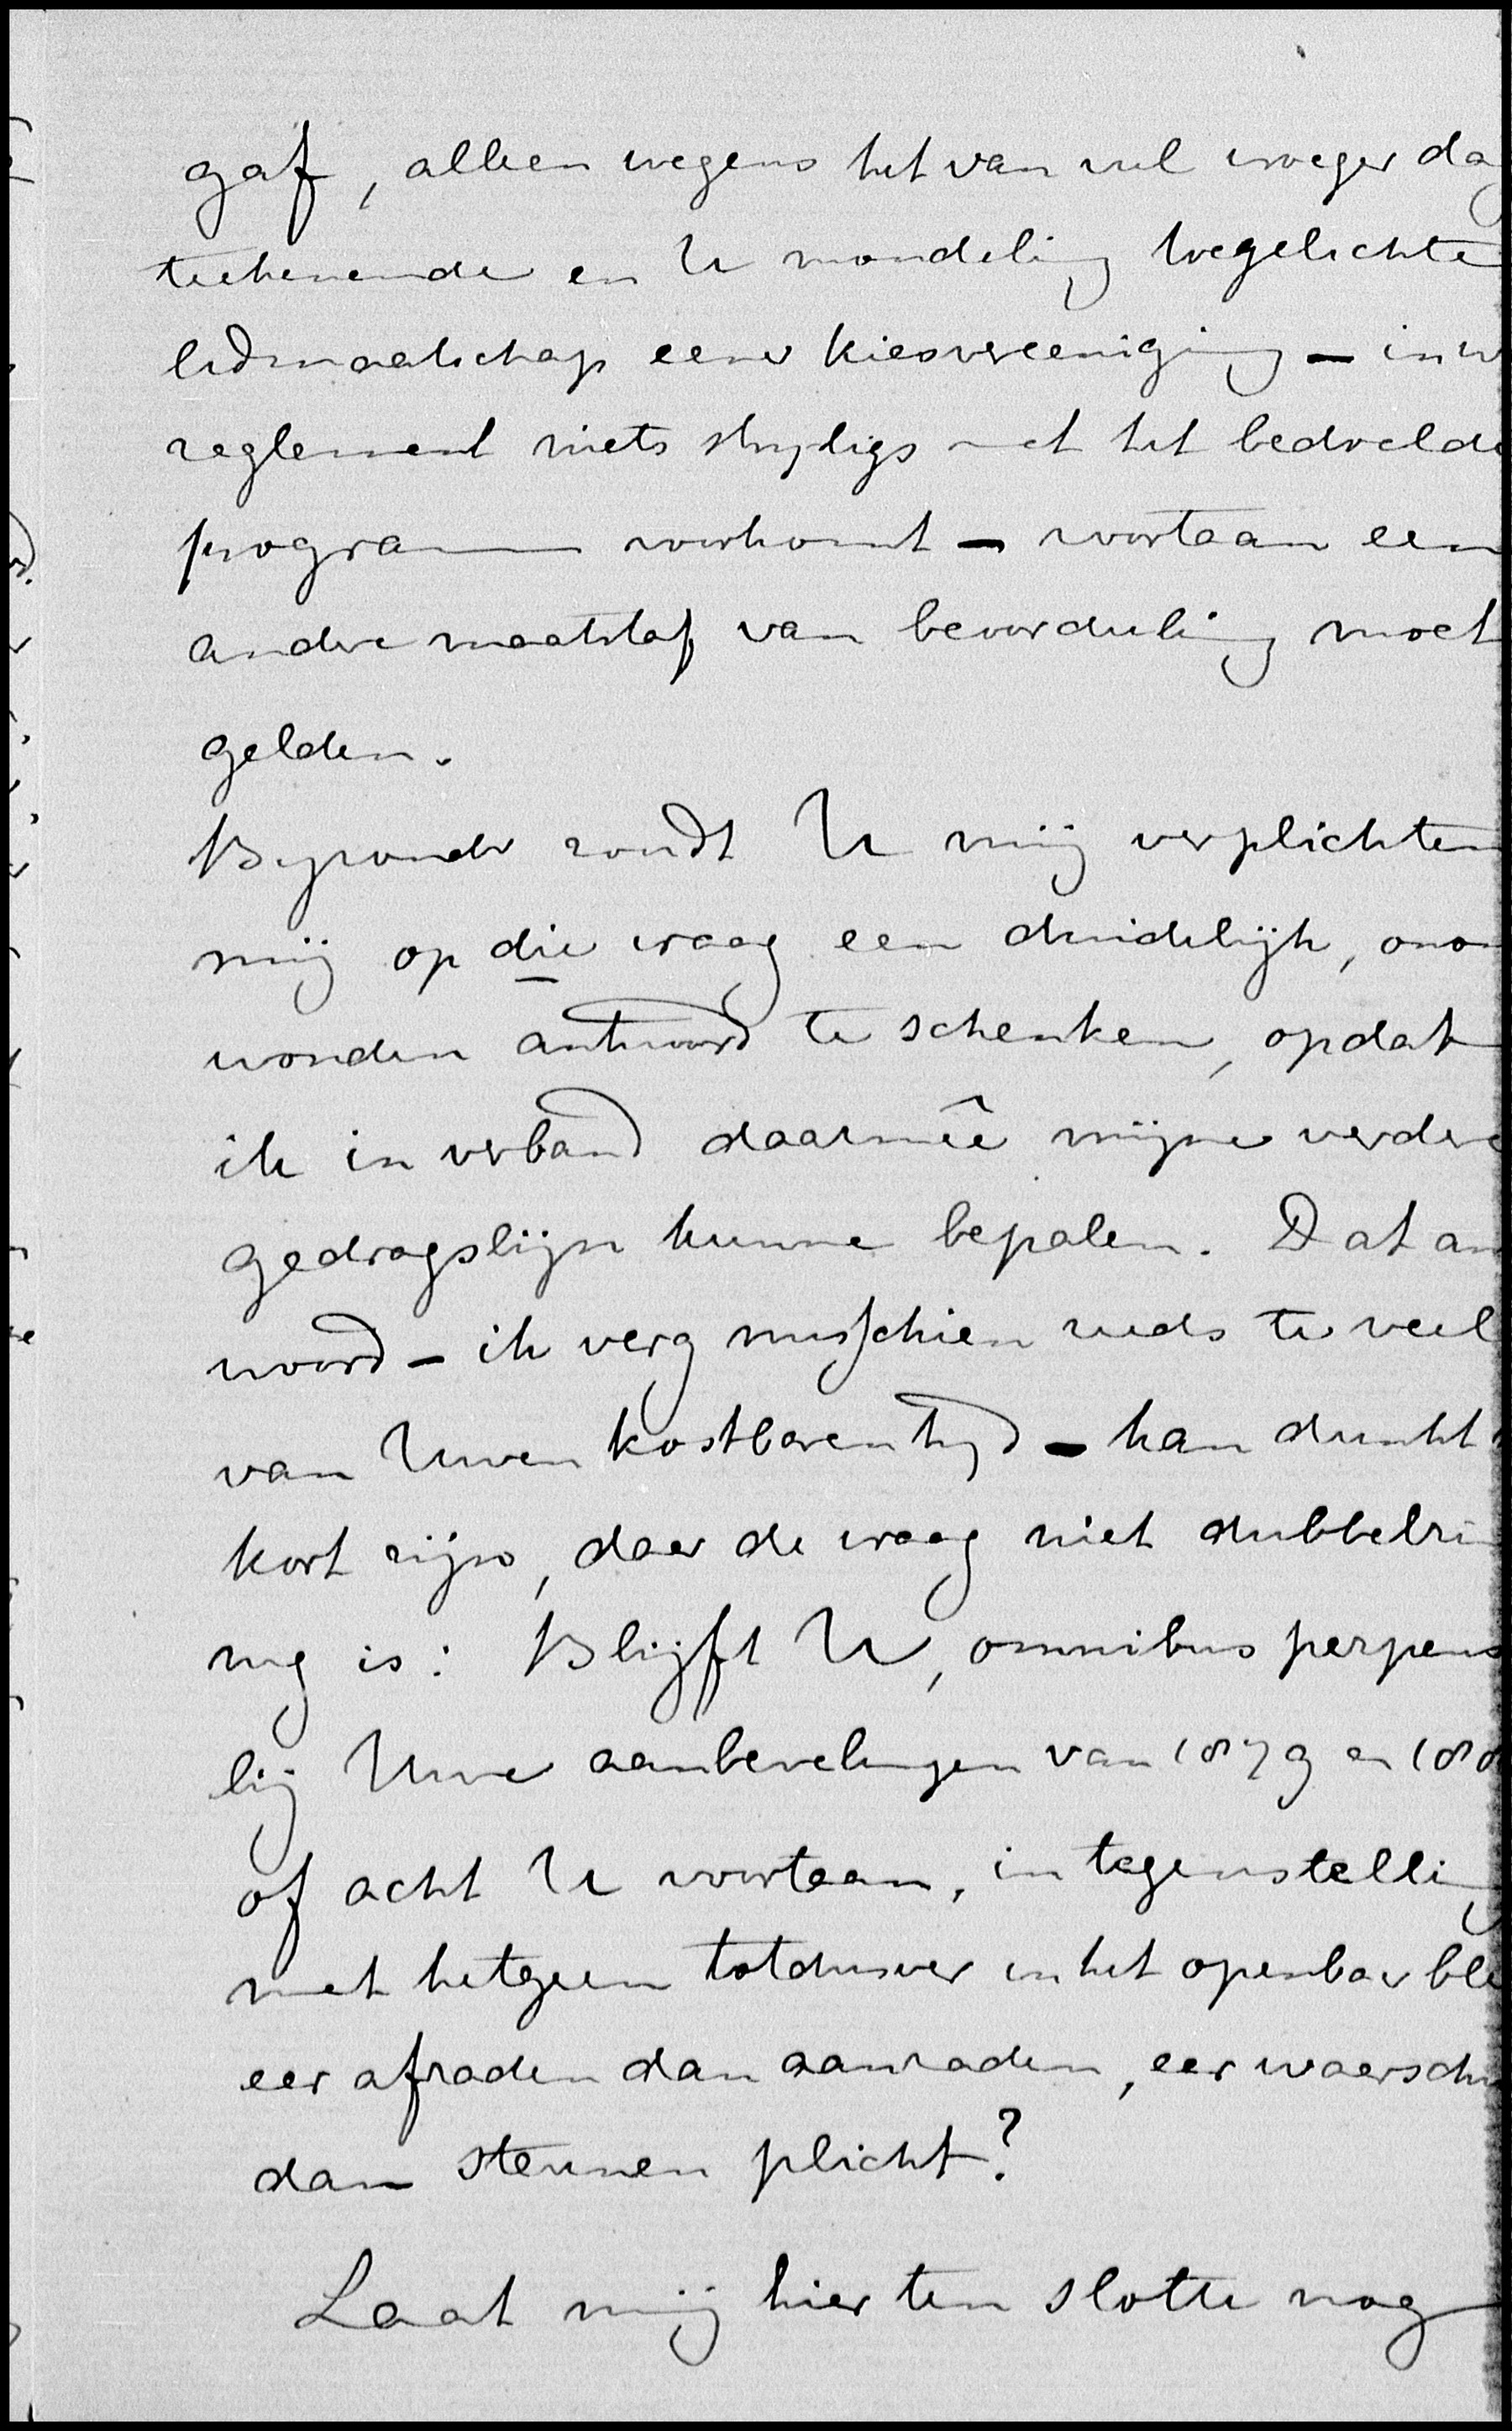 gaf, alleen wegens het van veel vroeger dag
teekenende en U mondeling toegelichte
lidmaatschap eener kiesvereeniging – in w
reglement niets strijdigs met het bedoelde
program voorkomt – voortaan een
andere maatstaf van beoordeeling moet
gelden.
Byzonder zoudt U mij verplichten
mij op die vraag een duidelijk, onom
wonden antwoord te schenken, opdat
ik in verband daarmêe mijne verdere
gedragslijn kunne bepalen. Dat an
woord – ik verg misschien reeds te veel
van Uwen kostbaren tyd – kan dunkt
kort zijn, daar de vraag niet dubbelzin
nig is: Blijft U, omnibus perpens
bij Uwe aanbevelingen van 1879 en 188
of acht U voortaan, in tegenstelling
met hetgeen totdusver in het openbaar ble
eer afraden dan aanraden, eer waarschu
dan steunen plicht?
Laat mij hier ten slotte nog